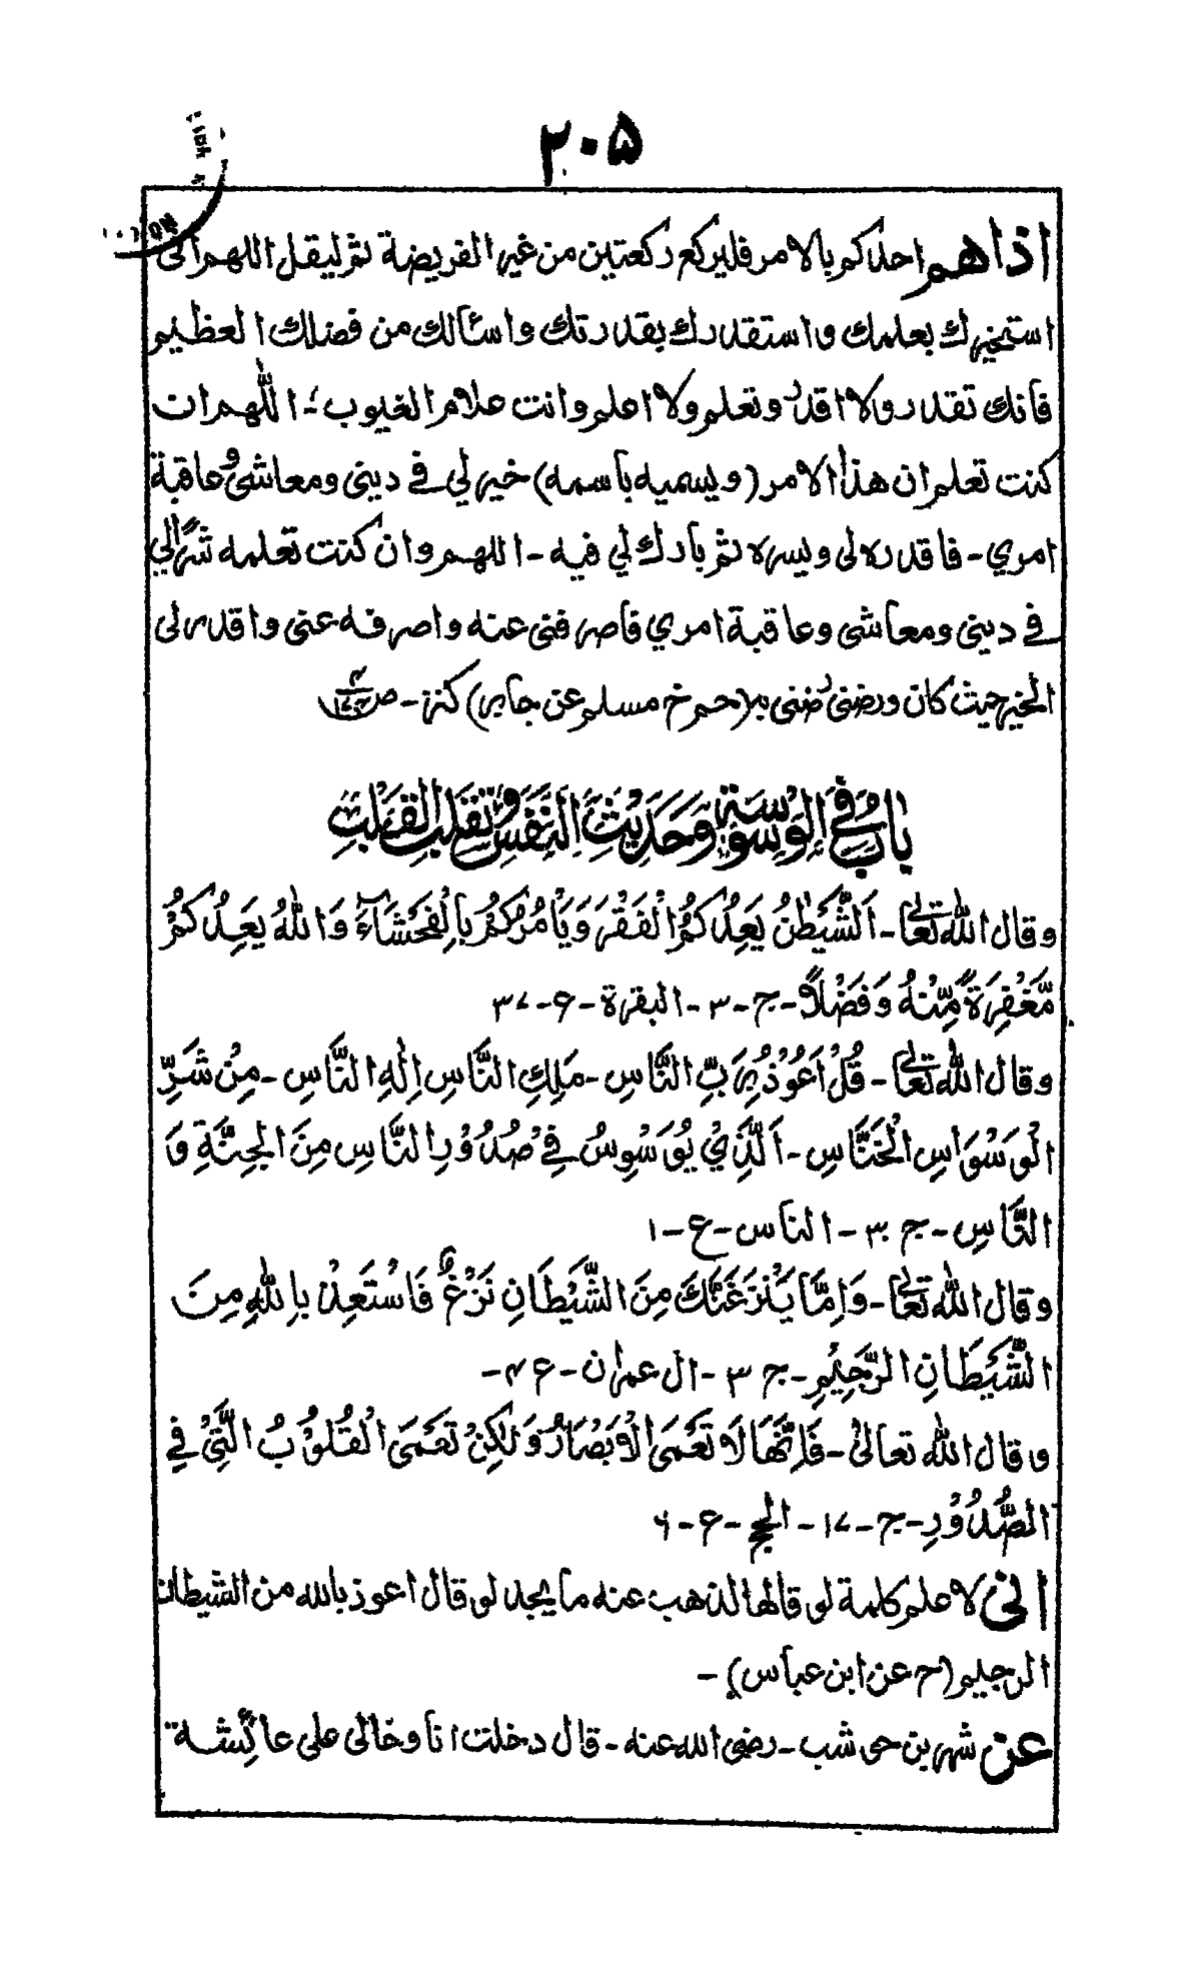 ۲۰۵
اذاهم احدكم بالامر فليركع ركعتين من غير الفريضة ثم ليقل اللهم انى
استخيرك بعلمك واستقدرك بقدرتك واسئالك من فضلك العظيم
فانك تقدر ولا اقدر وتعلم ولا اعلم وانت علام الغيوب؛- اللّٰهم ان
كنت تعلم ان هذا الامر (ويسميه باسمه) خير لي في دينى ومعاشى وعاقبة
امري - فاقدره لى ويسره ثم بارك لي فيه - اللهم وان كنت تعلمه شرًّا لي
في دينى ومعاشى وعاقبة امري فاصرفنى عنه واصرفه عنى واقدر لى
الخير حيث كان ورضنى بـ (حم خ مسلم عن جابر) كنز - صـ
بَابٌ فِي الوَسْوَسَةِ وَحَدِيْثِ النَفَسِ وَتَقَلُّبِ القَلْبِ
وقال الله تعالىٰ - اَلشَّيْطٰنُ يَعِدُكُمُ الْفَقْرَ وَيَاْمُرُكُمْ بِالْفَحْشَآءِ وَاللهُ يَعِدُكُمْ
مَّغْفِرَةً مِّنْهُ وَفَضْلًا - ج - ۳ - البقرة - ع - ۳۷
وقال الله تعالىٰ - قُلْ اَعُوْذُ بِرَبِّ النَّاسِ - مَلِكِ النَّاسِ اِلٰهِ النَّاسِ - مِنْ شَرِّ
الْوَسْوَاسِ الْخَنَّاسِ - اَلَّذِيْ يُوَسْوِسُ فِيْ صُدُوْرِ النَّاسِ مِنَ الْجِنَّةِ وَ
النَّاسِ - ج ۳۰ - الناس - ع - ۱
وقال الله تعالىٰ - وَاِمَّا يَنْزَغَنَّكَ مِنَ الشَّيْطَانِ نَزْغٌ فَاسْتَعِذْ بِاللهِ مِنَ
الشَّيْطَانِ الرَّجِيْمِ - ج ۳ - ال عمران - ع ۴ -
وقال الله تعالىٰ - فَاِنَّهَا لَا تَعْمَى الْاَبْصَارُ وَلٰكِنْ تَعْمَى الْقُلُوْبُ الَّتِيْ فِي
الصُّدُوْرِ - ج - ۱۷ - الحج - ع - ۶
انى لاعلم كلمة لو قالها لذهب عنه ما يجد لو قال اعوذ بالله من الشيطان
الرجيم (حم عن ابن عباس) -
عن شهر بن حوشب - رضى الله عنه - قال دخلت انا وخالى على عائشة